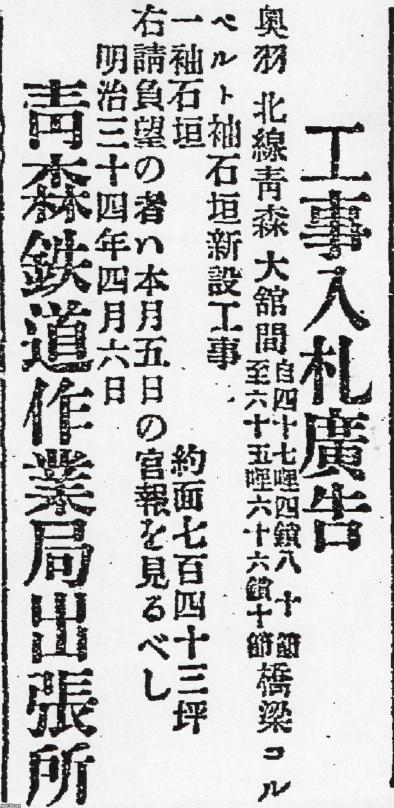 工事入札廣告
奥羽北線青森大舘間自四十七哩四鎖八十節至六十五哩六十六鎖十節橋梁コル
ベルト袖石垣新設工事
一袖石垣 約面七百四十三坪
右請負望の者ハ本月五日の官報を見るべし
明治三十四年四月六日
靑森鉄道作業局出張所